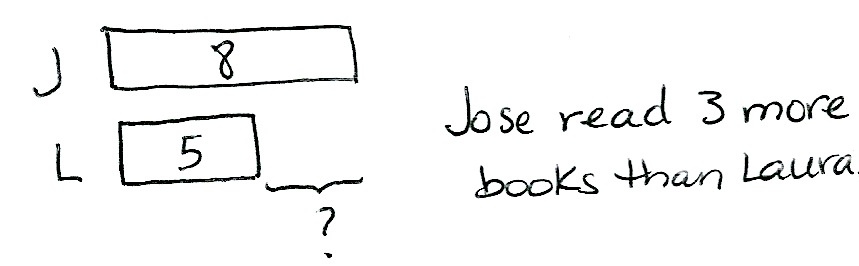 J 8
L 5
?
Jose read 3 more
books than Laura.